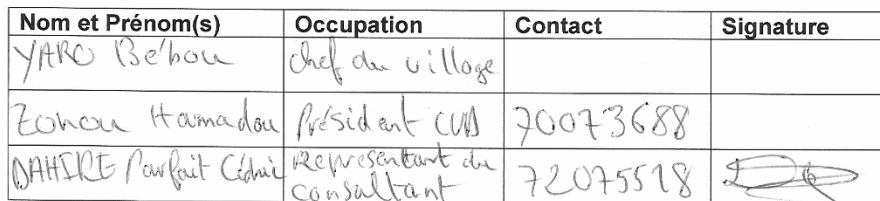 Nom et Prénom(s) Occupation Contact Signature
YARO Bébou chef du village
Zonou Hamadou Président CVD 70073688
DAHIRE Parfait Cédric Représentant du consultant 72075518